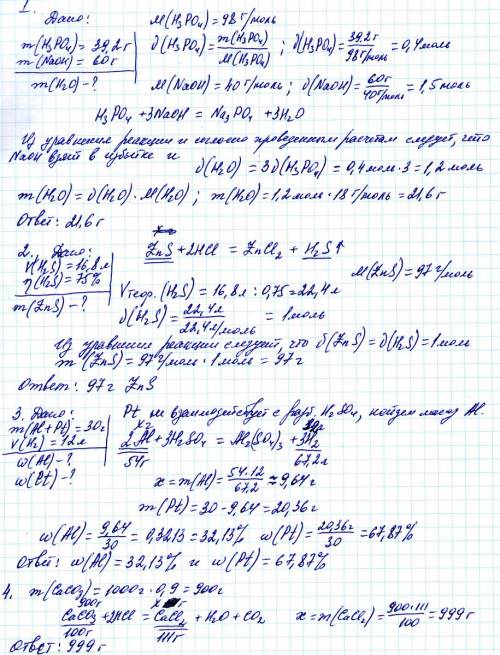 1.
Дано:
m(H₃PO₄) = 39,2г
m(NaOH) = 60г
m(H₂O) - ?
M(H₃PO₄) = 98 г/моль
ϑ(H₃PO₄) = m(H₃PO₄)/M(H₃PO₄) ; ϑ(H₃PO₄) = 39,2г/98г/моль = 0,4моль
M(NaOH) = 40г/моль ; ϑ(NaOH) = 60г/40г/моль = 1,5 моль
H₃PO₄ + 3NaOH = Na₃PO₄ + 3H₂O
Из уравнения реакции и согласно проведенным расчетам следует, что
NaOH взят в избытке и
ϑ(H₂O) = 3ϑ(H₃PO₄) = 0,4 мол · 3 = 1,2 моль
m(H₂O) = ϑ(H₂O) · M(H₂O) ; m(H₂O) = 1,2 мол · 18 г/моль = 21,6г
Ответ: 21,6 г
2. Дано:
V(H₂S) = 16,8л
η(H₂S) = 75%
m(ZnS) - ?
ZnS + 2HCl = ZnCl₂ + H₂S↑
M(ZnS) = 97 г/моль
Vтеор. (H₂S) = 16,8л : 0,75 = 22,4л
ϑ(H₂S) = 22,4л/22,4л/моль = 1моль
Из уравнения реакции следует, что ϑ(ZnS) = ϑ(H₂S) = 1моль
m(ZnS) = 97г/моль · 1моль = 97г
Ответ: 97 г ZnS
3. Дано:
m(Al + Pt) = 30г
V(H₂) = 12л
ω(Al) - ?
ω(Pt) - ?
Pt не взаимодействует с разб. H₂SO₄, найдем массу Al.
2Al + 3H₂SO₄ = Al₂(SO₄)₃ + 3H₂
54г 67,2л
x = m(Al) = 54·12/67,2 ≈ 9,64г
m(Pt) = 30 - 9,64 = 20,36г
ω(Al) = 9,64/30 = 0,3213 = 32,13% ω(Pt) = 20,36г/30 = 67,87%
Ответ: ω(Al) = 32,13% и ω(Pt) = 67,87%
4. m(CaCO₃) = 1000г · 0,9 = 900г
900г x г
CaCO₃ + 2HCl = CaCl₂ + H₂O + CO₂ x = m(CaCl₂) = 900·111/100 = 999г
100г 111г
Ответ: 999 г